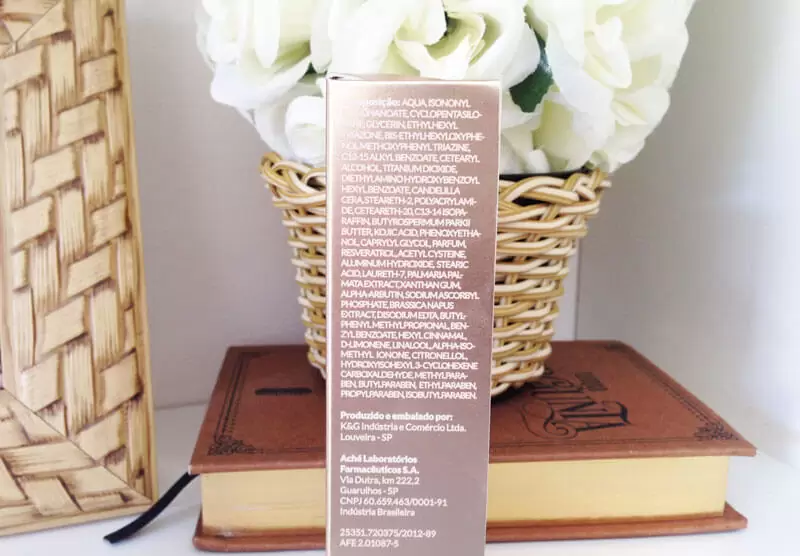 AQUA, ISONONYL
CYCLOPENTASILO-
GLYCERIN, ETHYLHEXYL
TRIAZONE, BIS-ETHYLHEXYLOXYPHE-
NOL METHOXYPHENYL TRIAZINE,
C13-15 ALKYL BENZOATE, CETEARYL
ALCOHOL, TITANIUM DIOXIDE,
DIETHYLAMINO HYDROXYBENZOYL
HEXYL BENZOATE, CANDELILLA
CERA, STEARETH-2, POLYACRYLAMI-
DE, CETEARETH-20, C13-14 ISOPA-
RAFFIN, BUTYROSPERMUM PARKII
BUTTER, KOJIC ACID, PHENOXYETHA-
NOL, CAPRYLYL GLYCOL, PARFUM,
RESVERATROL, ACETYL CYSTEINE,
ALUMINUM HYDROXIDE, STEARIC
ACID, LAURETH-7, PALMARIA PAL-
MATA EXTRACT,XANTHAN GUM,
ALPHA-ARBUTIN, SODIUM ASCORBYL
PHOSPHATE, BRASSICA NAPUS
EXTRACT, DISODIUM EDTA, BUTYL-
PHENYL METHYLPROPIONAL, BEN-
ZYL BENZOATE, HEXYL CINNAMAL,
D-LIMONENE, LINALOOL, ALPHA-ISO-
METHYL IONONE, CITRONELLOL,
HYDROXYISOHEXYL 3-CYCLOHEXENE
CARBOXALDEHYDE, METHYLPARA-
BEN, BUTYLPARABEN, ETHYLPARABEN,
PROPYLPARABEN, ISOBUTYLPARABEN.
Produzido e embalado por:
K&G Indústria e Comércio Ltda.
Louveira - SP
Aché Laboratórios
Farmacêuticos S.A.
Via Dutra, km 222,2
Guarulhos - SP
CNPJ 60.659.463/0001-91
Indústria Brasileira
25351.720375/2012-89
AFE 2.01087-5